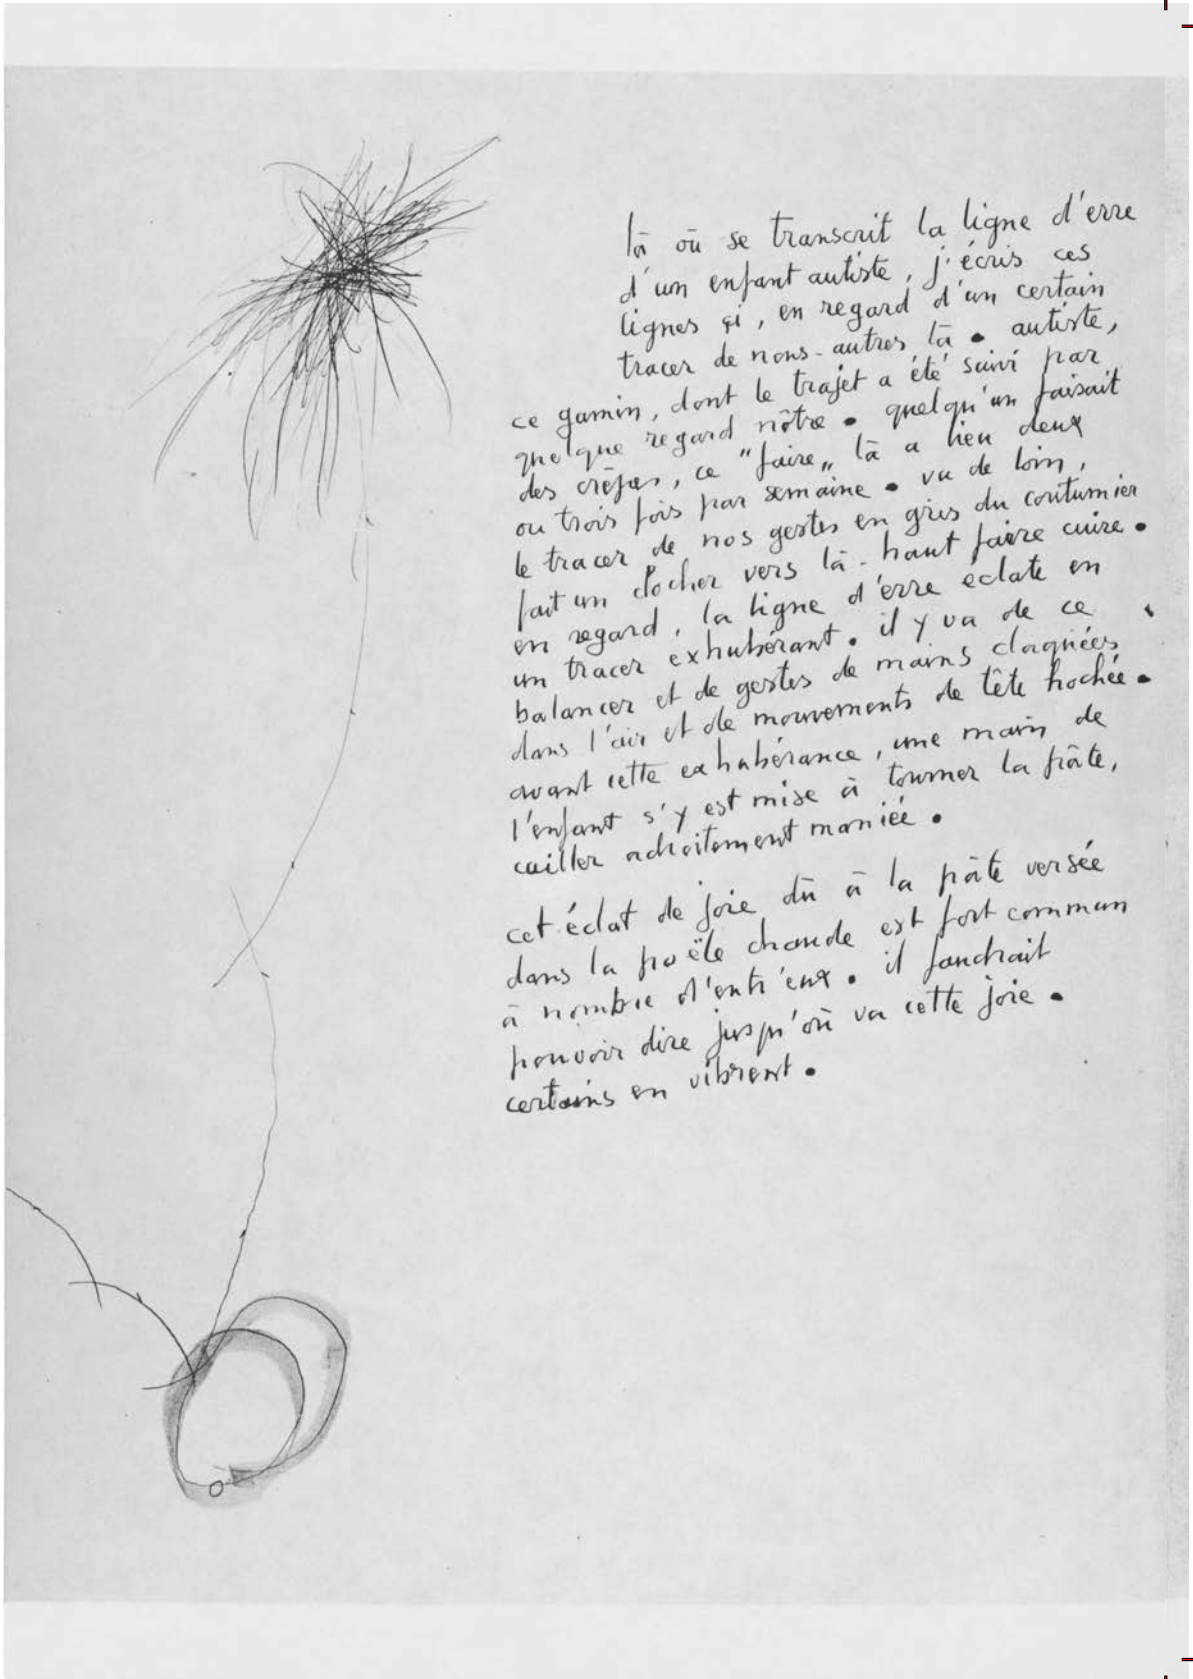 là où se transcrit la ligne d'erre
d'un enfant autiste, j'écris ces
lignes çi, en regard d'un certain
tracer de nous-autres là • autiste,
ce gamin, dont le trajet a été suivi par
quelque regard nôtre • quelqu'un faisait
des crêpes, ce "faire" là a lieu deux
ou trois fois par semaine • vu de loin,
le tracer de nos gestes en gris du coutumier
fait un clocher vers là-haut faire cuire •
en regard, la ligne d'erre éclate en
un tracer exhubérant • il y va de ce
balancer et de gestes de mains claquées
dans l'air et de mouvements de tête hochée •
avant cette exhubérance, une main de
l'enfant s'y est mise à tourner la pâte,
cuiller adroitement maniée •
cet éclat de joie dû à la pâte versée
dans la poële chaude est fort commun
à nombre d'entr'eux • il faudrait
pouvoir dire jusqu'où va cette joie •
certains en vibrent •